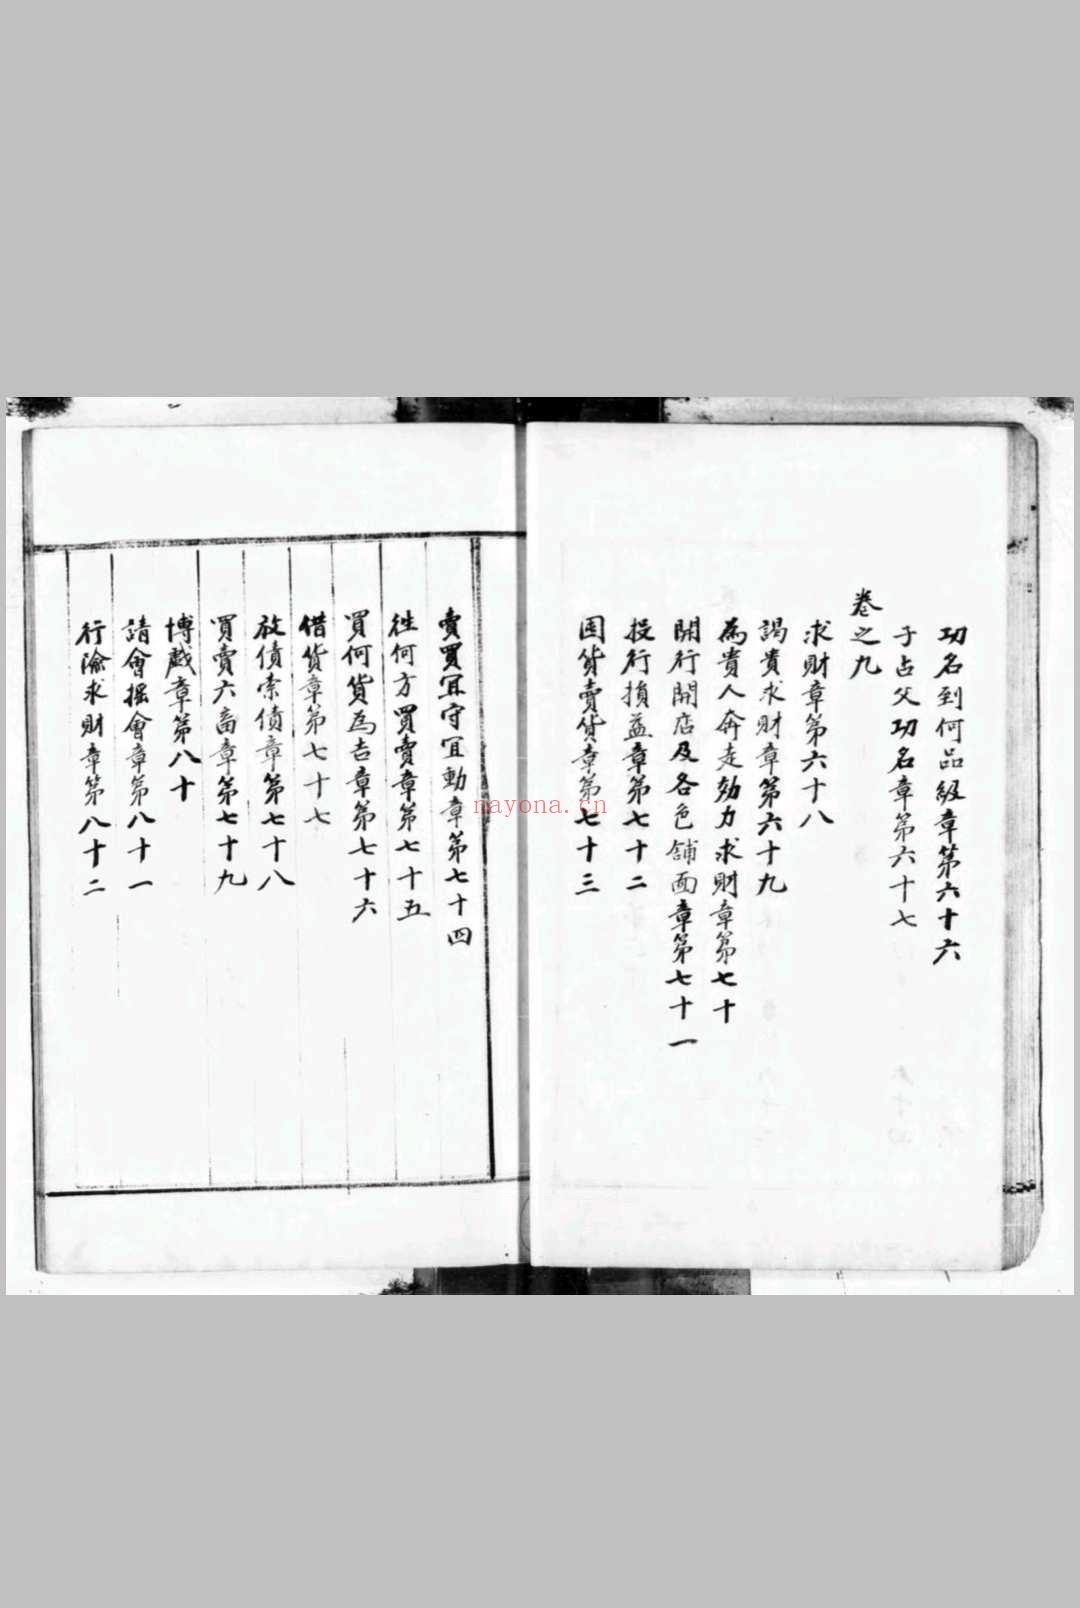 功名到何品級章第六十六
子占父功名章第六十七
卷之九
求財章第六十八
謁貴求財章第六十九
為貴人奔走効力求財章第七十
開行開店及各色舖面章第七十一
投行損益章第七十二
囤貨賣貨章第七十三
賣買宜守宜動章第七十四
往何方買賣章第七十五
買何貨為吉章第七十六
借貨章第七十七
放債索債章第七十八
買賣六畜章第七十九
博戯章第八十
請會搖會章第八十一
行險求財章第八十二
nayona.cn